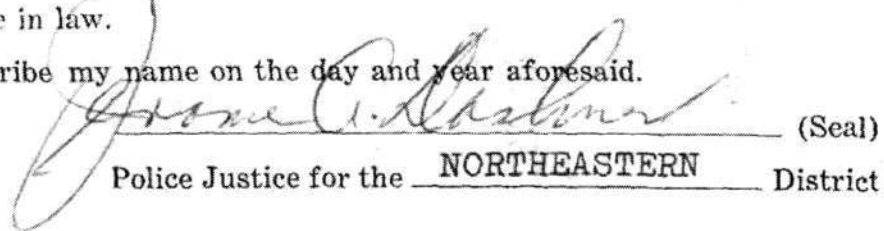 in law.
ribe my name on the day and year aforesaid.
A. (Seal)
Police Justice for the NORTHEASTERN District